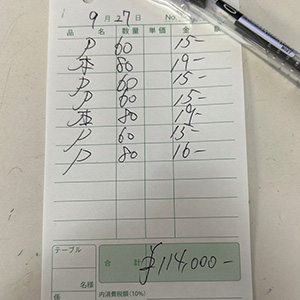 9月27日 No.
品名 数量 単価 金額
P 60 15-
本 80 19-
P 60 15-
P 60 15-
本 80 19-
P 60 15-
P 80 16-
テーブル
合計 ¥114,000-
名様
係 内消費税額(10%)